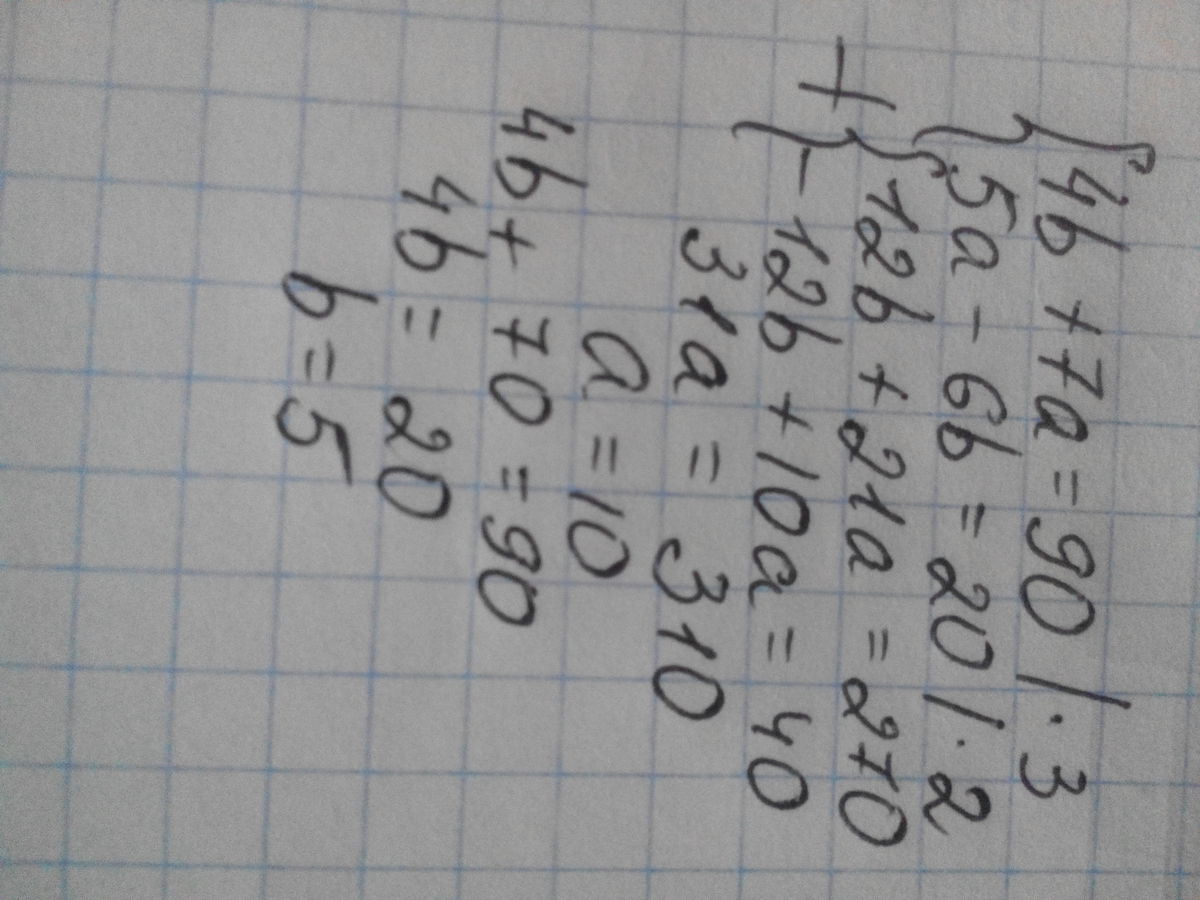 4b + 7a = 90 | · 3
5a - 6b = 20 | · 2
+ 12b + 21a = 270
- 12b + 10a = 40
31a = 310
a = 10
4b + 70 = 90
4b = 20
b = 5